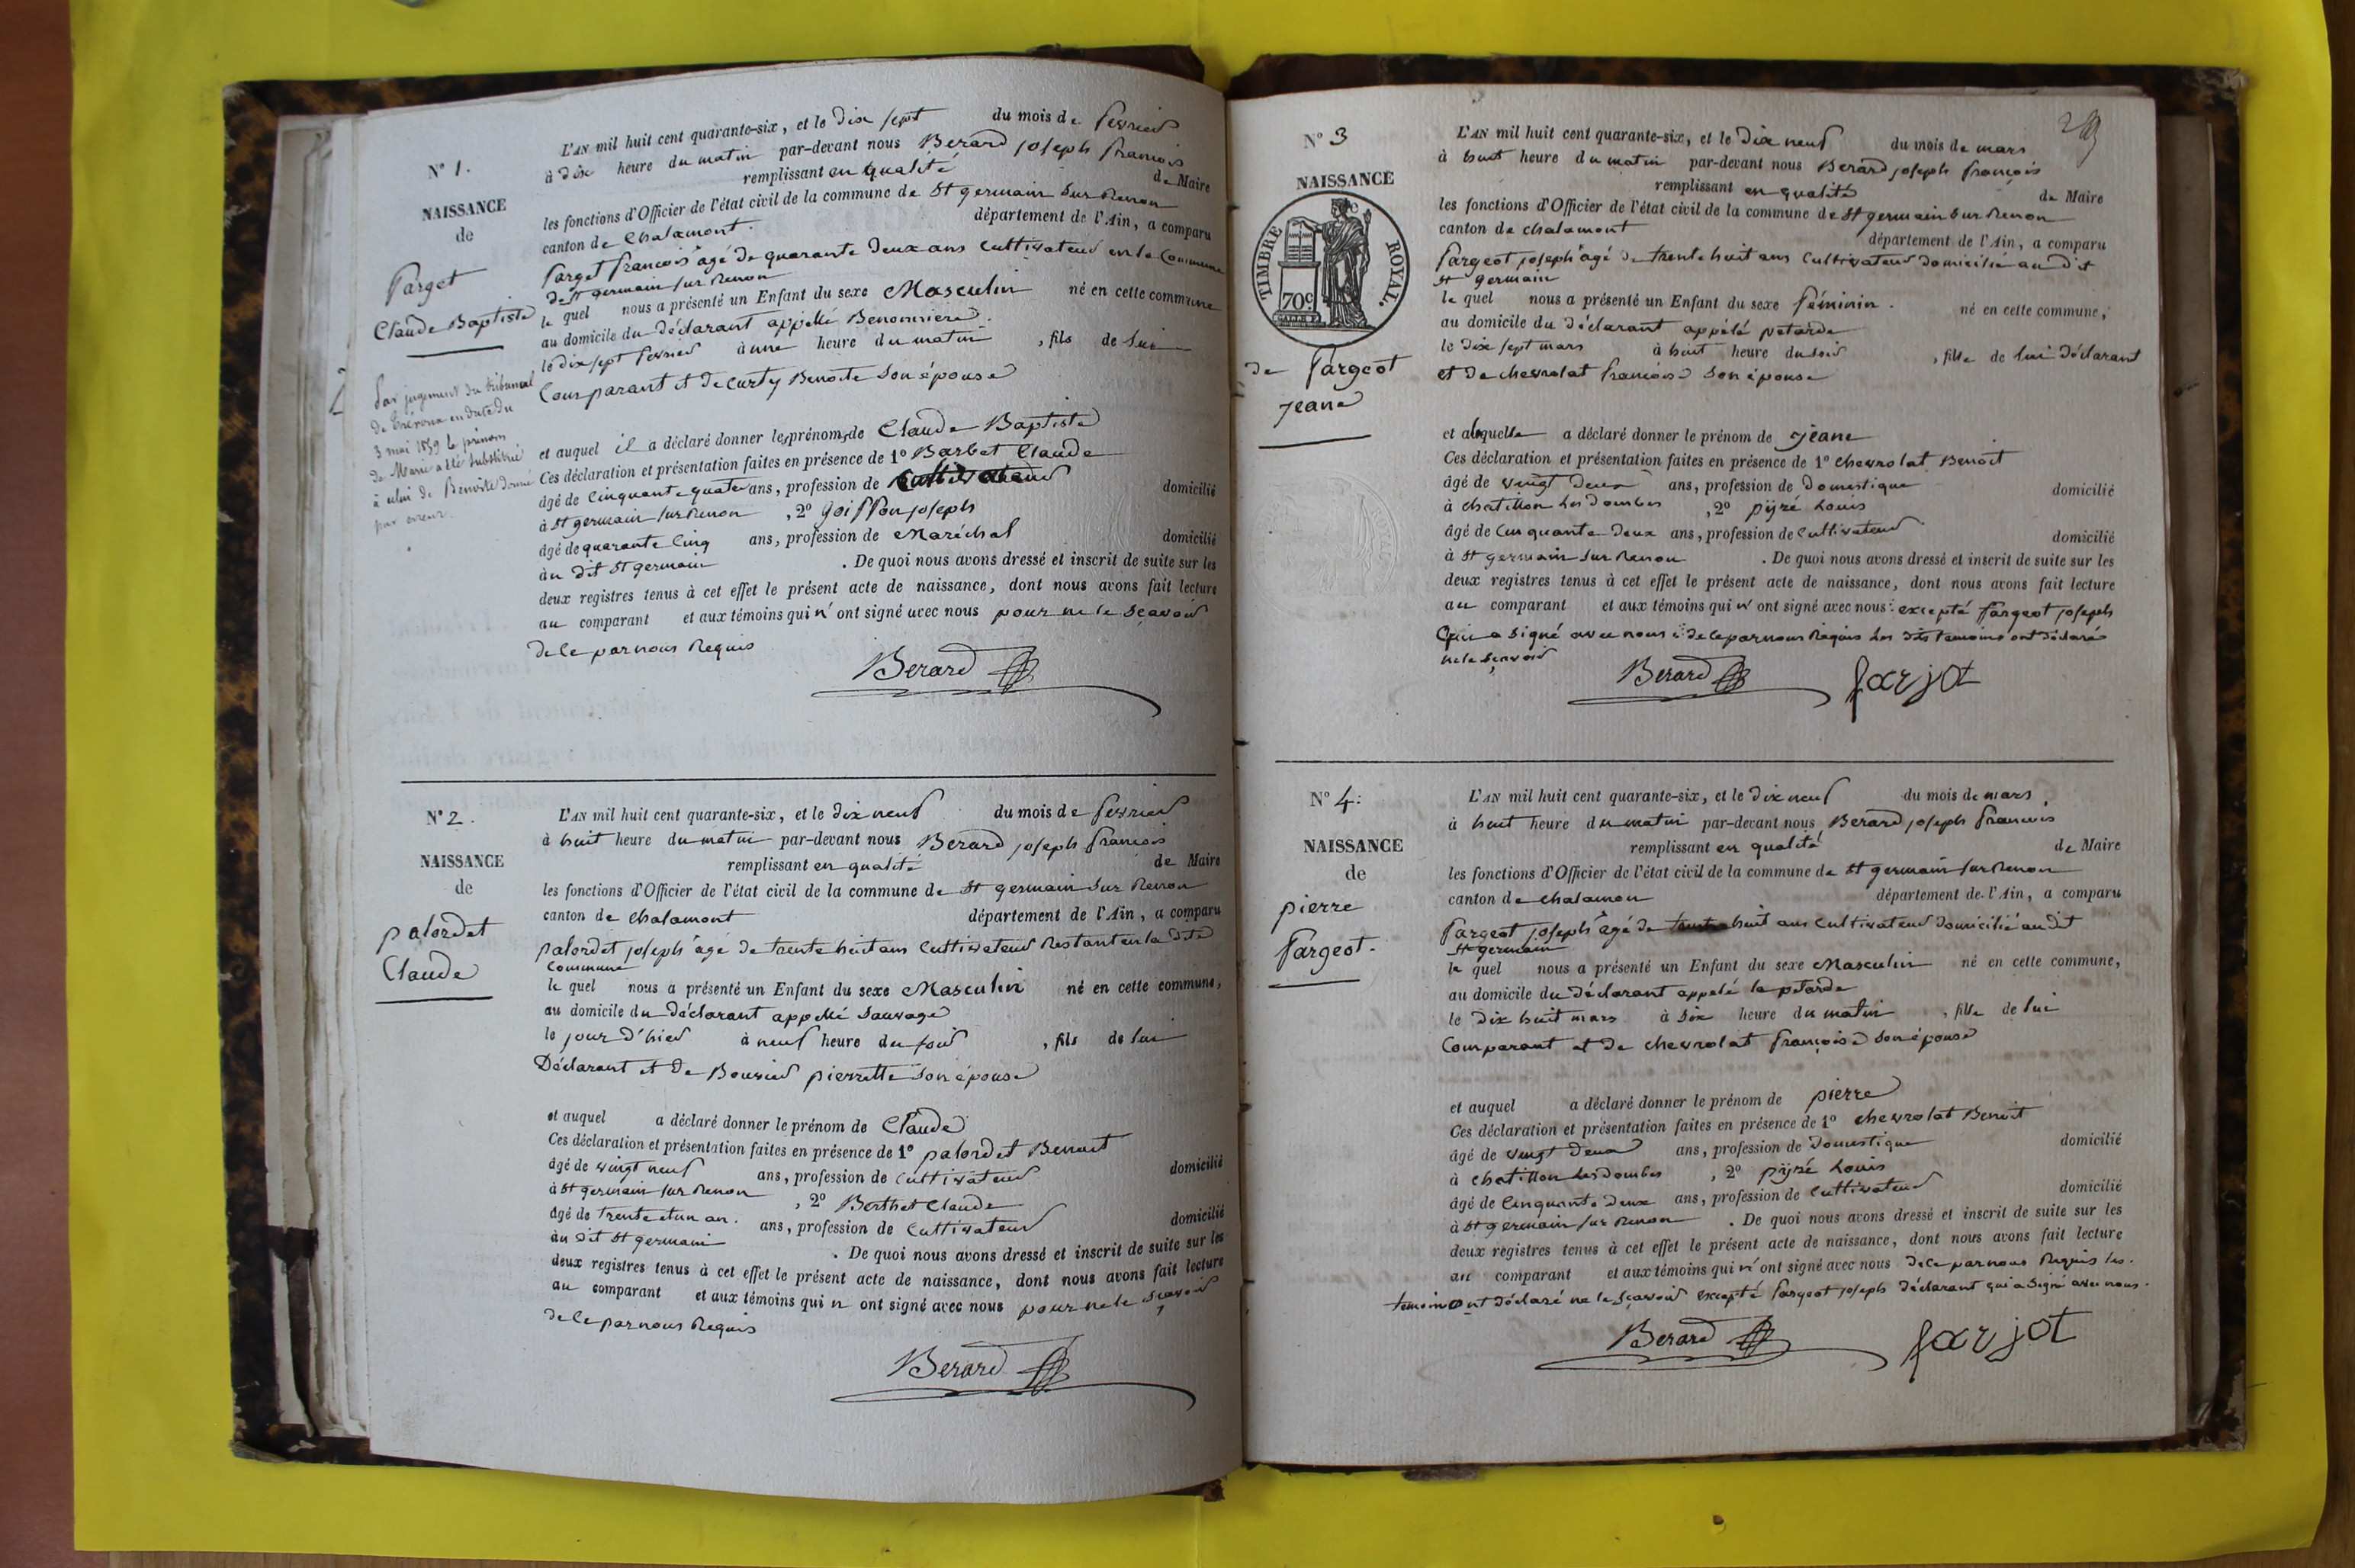 N° 1.
NAISSANCE
de
farget
Claude Baptiste
Par jugement du tribunal
de Trévoux en date du
3 mai 1859 le prénom
de Marie a été substitué
à celui de Benoite donné
par erreur.
L'AN mil huit cent quarante-six, et le dix sept du mois de fevrier
à dix heure du matin par-devant nous Berard joseph francois
remplissant en qualité de Maire
les fonctions d'Officier de l'état civil de la commune de St germain Sur Renon
canton de Chalamont. département de l'Ain, a comparu
farget francois âgé de quarante deux ans Cultivateur en la Commune
de St germain sur Renon
le quel nous a présenté un Enfant du sexe Masculin né en cette commune
au domicile du déclarant appellé Benonniere.
le dix sept fevrier à une heure du matin, fils de lui
Comparant et de curty Benoite Son épouse
et auquel il a déclaré donner les prénoms de Claude Baptiste
Ces déclaration et présentation faites en présence de 1° Barbet Claude
âgé de Cinquante quatre ans, profession de Cultivateur domicilié
à St germain sur Renon, 2° Goiffon joseph
âgé de quarante Cinq ans, profession de Maréchal domicilié
au dit St germain. De quoi nous avons dressé et inscrit de suite sur les
deux registres tenus à cet effet le présent acte de naissance, dont nous avons fait lecture
au comparant et aux témoins qui n' ont signé avec nous pour ne le Sçavoir
de Ce par nous Requis
Berard
N° 2.
NAISSANCE
de
palordet
Claude
L'AN mil huit cent quarante-six, et le dix neuf du mois de fevrier
à huit heure du matin par-devant nous Berard joseph francois
remplissant en qualité de Maire
les fonctions d'Officier de l'état civil de la commune de St germain Sur Renon
canton de Chalamont département de l'Ain, a comparu
palordet joseph âgé de trente huit ans Cultivateur Restant en la dite
Commune
le quel nous a présenté un Enfant du sexe Masculin né en cette commune,
au domicile du déclarant appellé Sauvage
le jour d'hier à neuf heure du soir, fils de lui
Déclarant et de Bouvier pierrette Son épouse
et auquel a déclaré donner le prénom de Claude
Ces déclaration et présentation faites en présence de 1° palordet Benoit
âgé de vingt neuf ans, profession de Cultivateur domicilié
à St germain sur Renon, 2° Berthet Claude
âgé de trente et un an. ans, profession de Cultivateur domicilié
au dit St germain. De quoi nous avons dressé et inscrit de suite sur les
deux registres tenus à cet effet le présent acte de naissance, dont nous avons fait lecture
au comparant et aux témoins qui n ont signé avec nous pour ne le Sçavoir
de Ce par nous Requis
Berard
N° 3
NAISSANCE
TIMBRE ROYAL.
70c
de fargeot
jeane
L'AN mil huit cent quarante-six, et le dix neuf du mois de mars
à huit heure du matin par-devant nous Berard joseph françois
remplissant en qualité de Maire
les fonctions d'Officier de l'état civil de la commune de St germain Sur Renon
canton de chalamont département de l'Ain, a comparu
fargeot joseph âgé de trente huit ans Cultivateur domicilié au dit
St germain
le quel nous a présenté un Enfant du sexe féminin. né en cette commune,
au domicile du déclarant appélé petarde
le dix sept mars à huit heure du soir, fille de lui déclarant
et de chevrolat françoise Son épouse
et a laquelle a déclaré donner le prénom de jeane
Ces déclaration et présentation faites en présence de 1° chevrolat Benoit
âgé de vingt deux ans, profession de Domestique domicilié
à chatillon les dombes, 2° pijré Louis
âgé de Cinquante Deux ans, profession de Cultivateur domicilié
à St germain sur Renon. De quoi nous avons dressé et inscrit de suite sur les
deux registres tenus à cet effet le présent acte de naissance, dont nous avons fait lecture
au comparant et aux témoins qui n' ont signé avec nous: excepté fargeot joseph
Qui a Signé avec nous de Ce par nous Requis les dits temoins ont déclarés
ne le Sçavoir
Berard farjot
N° 4:
NAISSANCE
de
pierre
fargeot.
L'AN mil huit cent quarante-six, et le dix neuf du mois de mars,
à huit heure du matin par-devant nous Berard joseph francois
remplissant en qualité de Maire
les fonctions d'Officier de l'état civil de la commune de St germain sur Renon
canton de chalamon département de l'Ain, a comparu
fargeot joseph âgé de trente huit ans Cultivateur domicilié au dit
St germain
le quel nous a présenté un Enfant du sexe Masculin né en cette commune,
au domicile du déclarant appelé la petarde
le dix huit mars à Six heure du matin, fille de lui
Comparant et de chevrolat françoise Son épouse
et auquel a déclaré donner le prénom de pierre
Ces déclaration et présentation faites en présence de 1° chevrolat Benoit
âgé de vingt deux ans, profession de Domestique domicilié
à chatillon les dombes, 2° pijré Louis
âgé de Cinquante Deux ans, profession de Cultivateur domicilié
à St germain sur Renon. De quoi nous avons dressé et inscrit de suite sur les
deux registres tenus à cet effet le présent acte de naissance, dont nous avons fait lecture
au comparant et aux témoins qui n' ont signé avec nous de Ce par nous Requis les.
temoin ont déclaré ne le Sçavoir excepté fargeot joseph déclarant qui a Signé avec nous.
Berard farjot